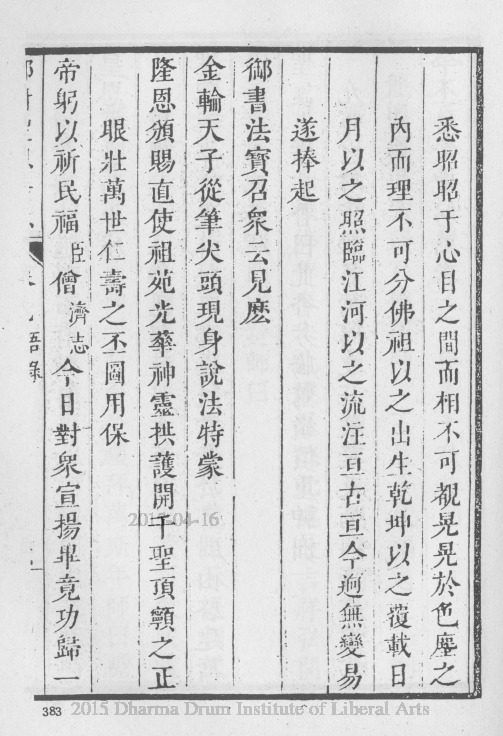 悉昭昭于心目之間而相不可覩晃晃於色塵之
內而理不可分佛祖以之出生乾坤以之覆載日
月以之照臨江河以之流注亘古亘今逈無變易
遂捧起
御書法寶召衆云見麽
金輪天子從筆尖頭現身說法特蒙
隆恩頒賜直使祖苑光華神靈拱護開千聖頂顙之正
眼壯萬世仁壽之丕圖用保
帝躬以祈民福臣僧濟志今日對衆宣揚畢竟功歸一
語錄
2015-04-16
383
2015 Dharma Drum Institute of Liberal Arts